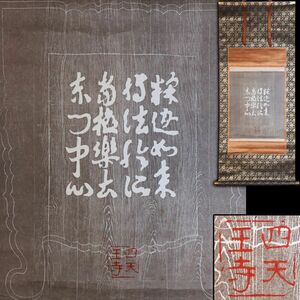 釋迦如来
轉法輪所
當極樂土
東門中心
四天
王寺
四天
王寺